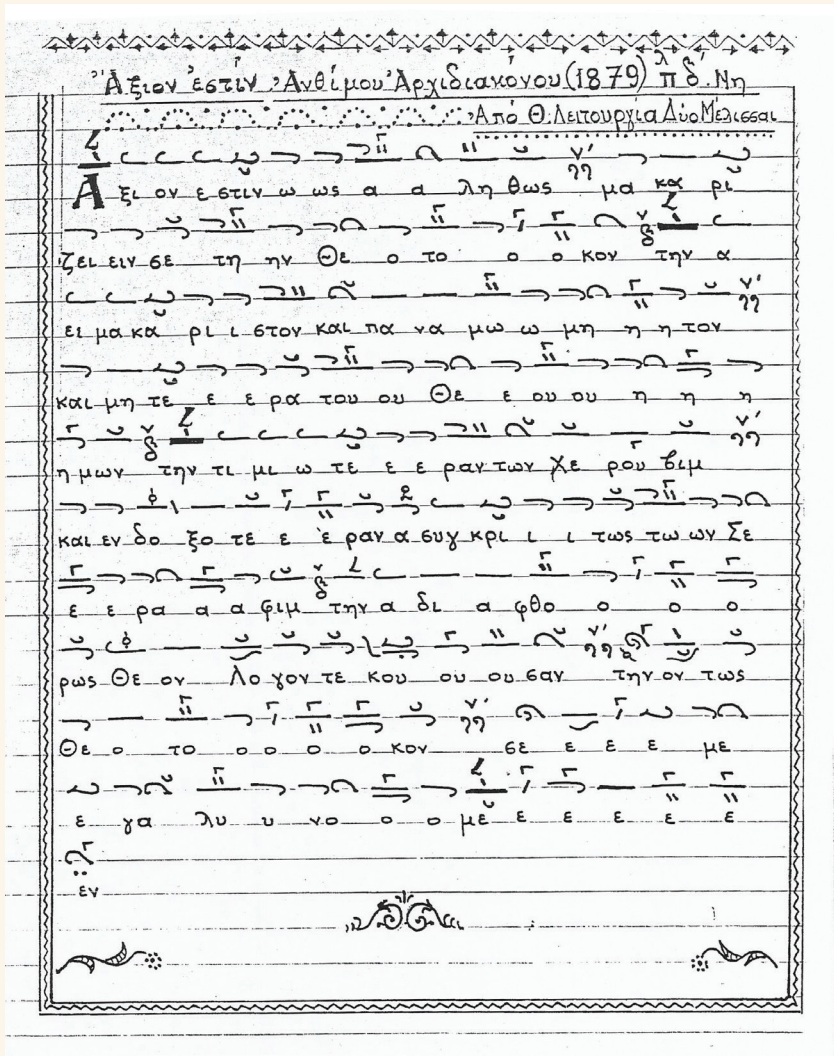 Ἄξιον ἐστίν, Ἀνθίμου Ἀρχιδιακόνου (1879) λ π δ́. Νη
Ἀπό Θ. Λειτουργία Δύο Μέλισσαι
Α ξι ον ε στιν ω ως α α λη θως μα κα ρι
ζει ειν σε τη ην Θε ο το ο ο κον την α
ει μα κα ρι ι στον και πα να μω ω μη η η τον
και μη τε ε ε ρα του ου Θε ε ου ου η η η
η μων την τι μι ω τε ε ε ραν των χε ρου βιμ
και εν δο ξο τε ε ε ραν α συγ κρι ι ι τως τω ων Σε
ε ε ρα α α φιμ την α δι α φθο ο ο ο
ρως Θε ον Λο γον τε κου ου ου σαν την ον τως
Θε ο το ο ο ο ο κον σε ε ε ε με
ε γα λυ υ νο ο ο με ε ε ε ε ε
εν